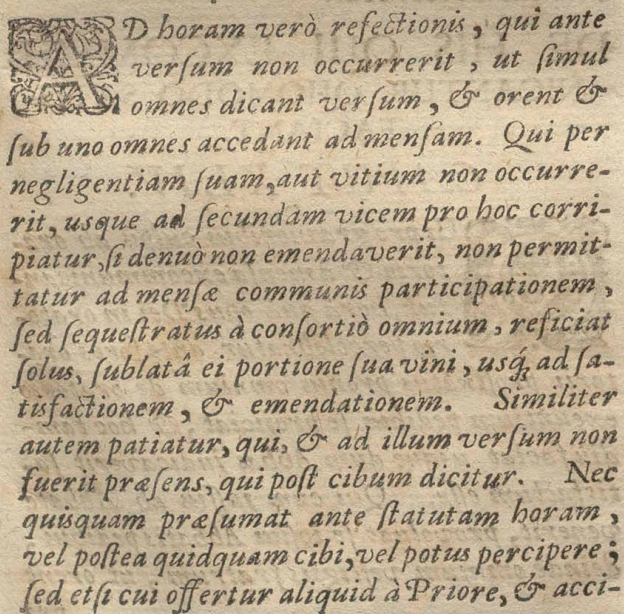 AD horam verò refectionis, qui ante
versum non occurrerit, ut simul
omnes dicant versum, & orent &
sub uno omnes accedant ad mensam. Qui per
negligentiam suam, aut vitium non occurre-
rit, usque ad secundam vicem pro hoc corri-
piatur, si denuò non emendaverit, non permit-
tatur ad mensæ communis participationem,
sed sequestratus à consortiò omnium, reficiat
solus, sublatâ ei portione sua vini, usq́; ad sa-
tisfactionem, & emendationem. Similiter
autem patiatur, qui, & ad illum versum non
fuerit præsens, qui post cibum dicitur. Nec
quisquam præsumat ante statutam horam,
vel postea quidquam cibi, vel potus percipere;
sed et si cui offertur aliquid à Priore, & acci-